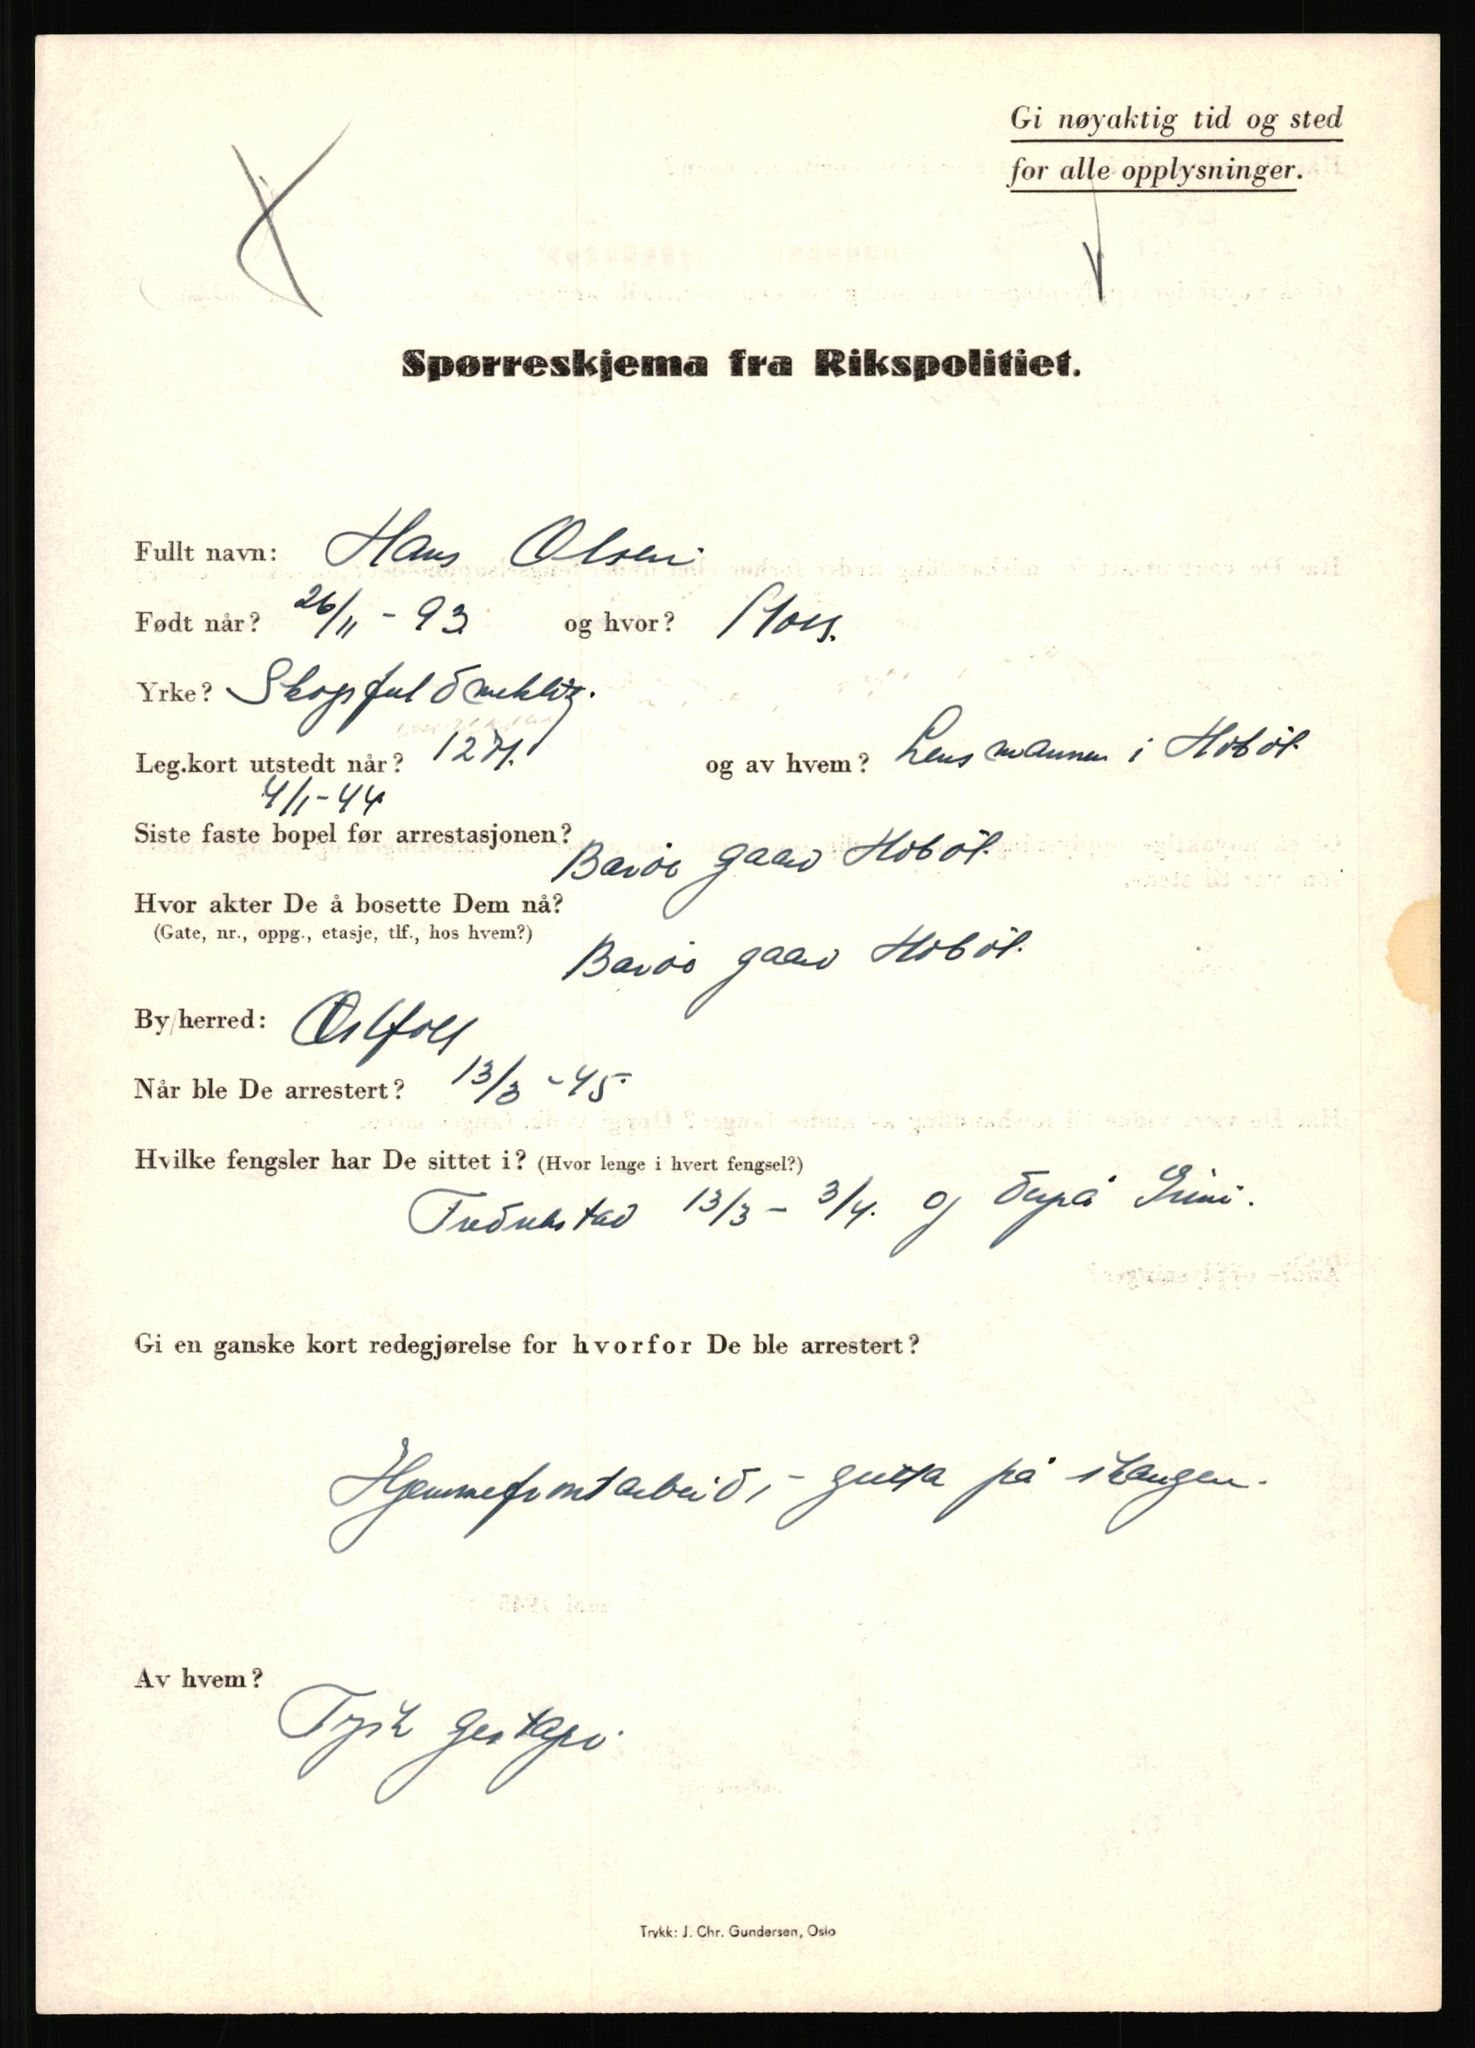 Gi nøyaktig tid og sted
for alle opplysninger.
Spørreskjema fra Rikspolitiet.
Fullt navn: Hans Olsen
Født når? 26/11 - 93 og hvor? Moss.
Yrke?
Leg.kort utstedt når? og av hvem? Lensmannen i Hobøl.
4/1-44
Siste faste bopel før arrestasjonen?
gaard Hobøl.
Hvor akter De å bosette Dem nå?
(Gate, nr., oppg., etasje, tlf., hos hvem?)
gaard Hobøl.
By/herred: Østfold
Når ble De arrestert? 13/3 -45.
Hvilke fengsler har De sittet i? (Hvor lenge i hvert fengsel?)
Fredrikstad 13/3 - 3/4. og derpå Grini.
Gi en ganske kort redegjørelse for hvorfor De ble arrestert?
Hjemmefrontarbeid, - gutta på skaugen.
Av hvem?
Tysk gestapo.
Trykk: J. Chr. Gundersen, Oslo